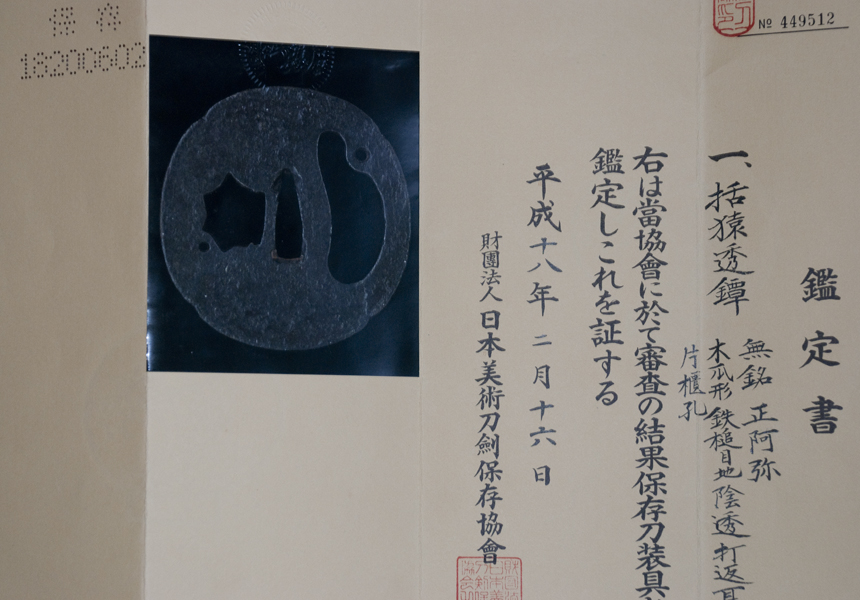 № 449512
鑑定書
一、括猿透鐔
無銘 正阿弥
木瓜形 鉄槌目地 陰透 打返耳
片櫃孔
右は當協會に於て審査の結果保存刀装具
鑑定しこれを証する
平成十八年二月十六日
財團法人 日本美術刀劍保存協會
保存
18200602